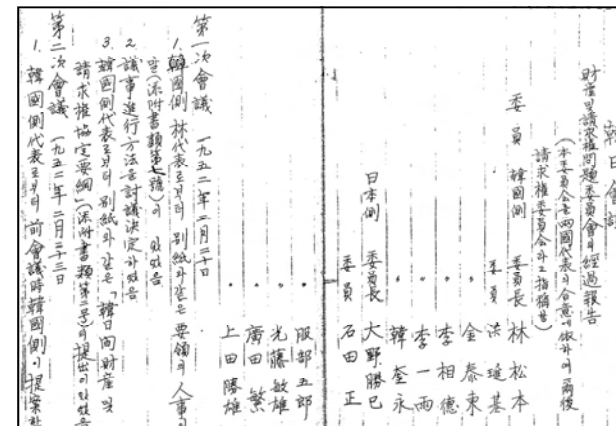 韓日會談
財産및請求權問題委員會의經過報告
(本委員會는兩國代表의合意에依하여爾後
請求權委員會라고指稱함)
委員 韓國側 委員長 林松本
委員 洪璡基
〃 金泰東
〃 李相德
〃 李一雨
〃 韓奎永
日本側 委員長 大野勝巳
委員 石田正
〃 服部五郎
〃 光藤敏雄
〃 廣田繁
〃 上田勝雄
第一次會議 一九五二年二月二十日
1. 韓國側 林代表로부터 別紙와같은 要領의 人事
말(添附書類第七號)이 있었음
2. 議事進行方法을討議決定하였음
3. 韓國側代表로부터 別紙와같은 「韓日間財産및
請求權協定要綱」(添附書類第二号)의提出이있었음
第二次會議 一九五二年二月二十三日
1. 韓國側代表로부터 前會議時韓國側이提案한